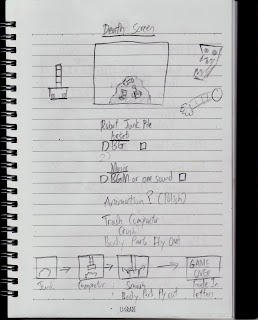 Death Screen
Robot Junk Pile
Assets
BG
2)
Music
BGM or one sound
Animation? (Polish)
Trash Compactor
Crush
Body Part Fly Out
GAME
OVER
Junk Compactor Smash Fade In
Body Part Fly out Letters